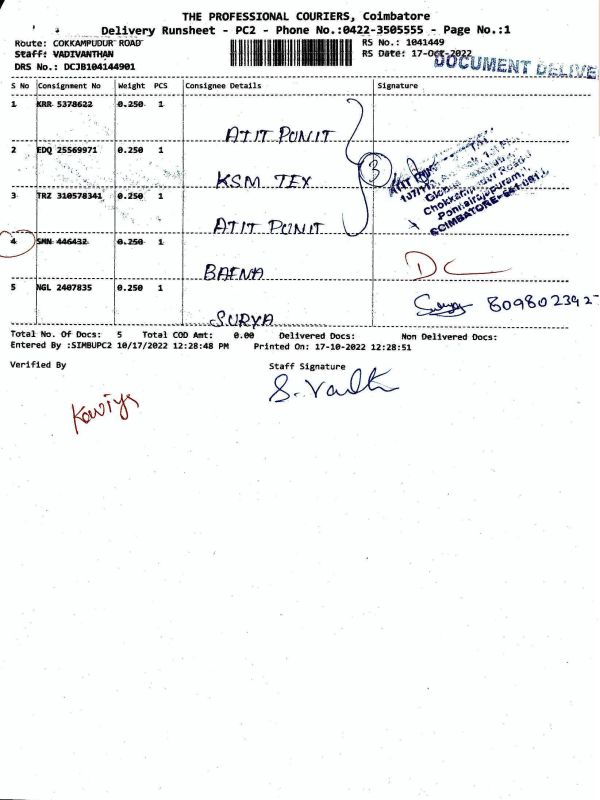 THE PROFESSIONAL COURIERS, Coimbatore
Delivery Runsheet - PC2 - Phone No.:0422-3505555 - Page No.:1
Route: COKKAMPUDUR ROAD RS No.: 1041449
Staff: VADIVANTHAN RS Date: 17-Oct-2022
DRS No.: DCJB104144901
DOCUMENT DELIVE
S No Consignment No Weight PCS Consignee Details Signature
1 KRR 5378622 0.250 1
ATIT PUNIT
2 EDQ 25569971 0.250 1
KSM TEX
3
3 TRZ 310578341 0.250 1
ATIT PUNIT
COIMBATORE-641 001
4 SMN 446432 0.250 1
BAFNA
DC
5 NGL 2407835 0.250 1
SURYA
Surya 8098023927
Total No. Of Docs: 5 Total COD Amt: 0.00 Delivered Docs: Non Delivered Docs:
Entered By :SIMBUPC2 10/17/2022 12:28:48 PM Printed On: 17-10-2022 12:28:51
Verified By Staff Signature
Kaviya